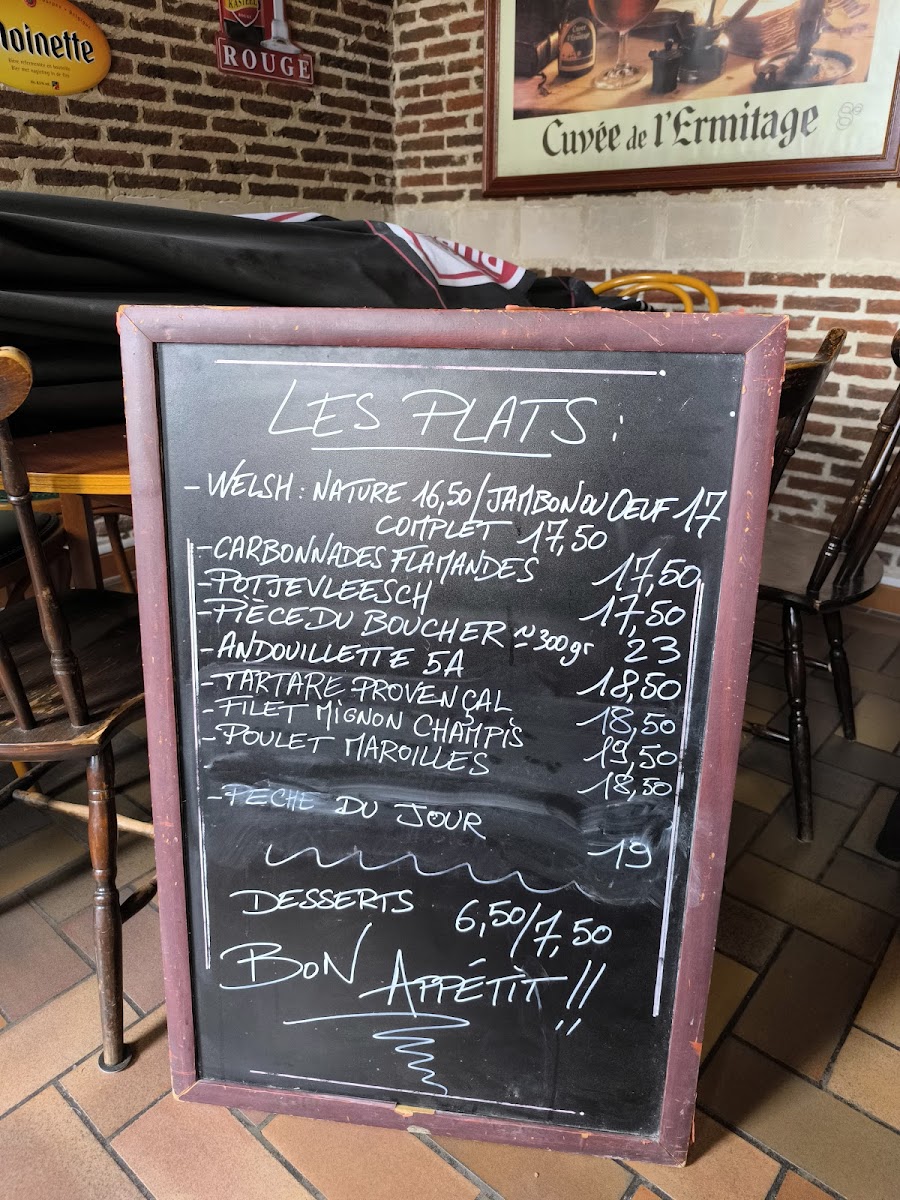 KASTEEL
ROUGE
oinette
Cuvée de l'Ermitage
LES PLATS :
- WELSH : NATURE 16,50 / JAMBON OU OEUF 17
COMPLET 17,50
- CARBONNADES FLAMANDES 17,50
- POTJEVLEESCH 17,50
- PIÈCE DU BOUCHER ~300gr 23
- ANDOUILLETTE 5A 18,50
- TARTARE PROVENÇAL 18,50
- FILET MIGNON CHAMPIS 19,50
- POULET MAROILLES 18,50
- PECHE DU JOUR 19
DESSERTS 6,50/7,50
BON APPÉTIT !!